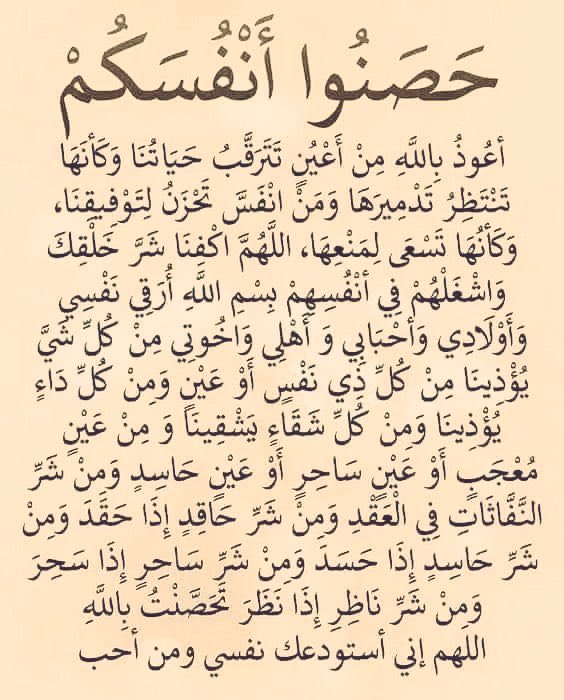 حَصَنُوا أَنْفُسَكُمْ
أعُوذُ بِاللَّهِ مِنْ أَعْيُنٍ تَتَرَقَّبُ حَيَاتُنَا وَكَأنَهَا
تَنْتَظِرُ تَدْمِيرَهَا وَمَنْ انْفَسَّ تَحْزَنُ لِتَوْفِيقِنَا،
وَكَأنُهَا تَسْعَى لِمَنْعِهَا، اللَّهُمَّ اكْفِنَا شَرَّ خَلْقِكَ
وَاشْغَلْهُمْ فِي أنْفُسِهِمْ بِسْمِ اللَّهِ أُرَقِي نَفْسِي
وَأَوْلَادِي وَأحْبَابِي وَ أَهْلِي وَاخُوتِي مِنْ كُلِّ شَيَّ
يُؤْذِينَا مِنْ كُلِّ ذِي نَفْسٍ أَوْ عَيْنٍ وَمِنْ كُلِّ دَاءٍ
يُؤْذِينَا وَمِنْ كُلِّ شَقَاءٍ يَشْقِينَا وَ مِنْ عَيْنٍ
مُعْجَبٍ أَوْ عَيْنٍ سَاحِرٍ أَوْ عَيْنٍ حَاسِدٍ وَمِنْ شَرِّ
النَّفَّاثَاتِ فِي الْعَقْدِ وَمِنْ شَرِّ حَاقِدٍ إِذَا حَقَدَ وَمِنْ
شَرِّ حَاسِدٍ إِذَا حَسَدَ وَمِنْ شَرِّ سَاحِرٍ إِذَا سَحِرَ
وَمِنْ شَرِّ نَاظِرِ إِذَا نَظَرَ تَحَصَّنْتُ بِاللَّهِ
اللهم إني أستودعك نفسي ومن أحب